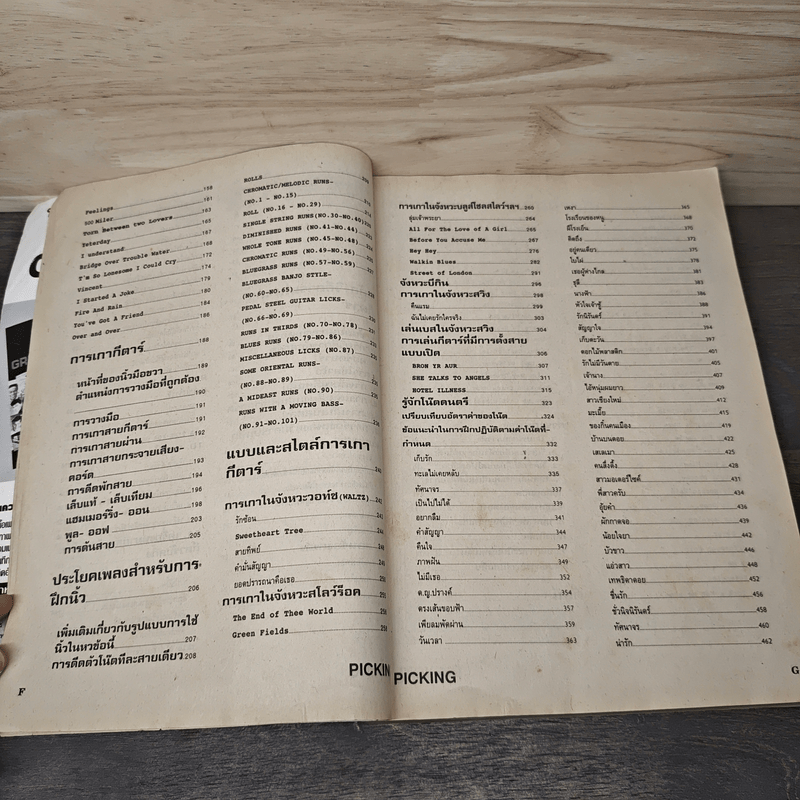 Feelings 158
500 Miler 161
Torn Between two Lovers 163
Yeterday 165
I understand 167
Bridge Over Trouble Water 168
T'm So Lonesome I Could Cry 172
Vincent 174
I Started A Joke 179
Fire And Rain 180
You've Got A Friend 184
Over and Over 186
การเกากีตาร์ 188
หน้าที่ของนิ้วมือขวา 189
ตำแหน่งการวางมือที่ถูกต้อง
190
การวางมือ 191
การเกาสายกีตาร์ 191
การเกาสายผ่าน 192
การเกาสายกระจายเสียง-
คอร์ด 193
การดีดพักสาย 194
เล็บแท้ - เล็บเทียม 196
แฮมเมอร์ริ่ง- ออน 198
พูล- ออฟ 203
การดันสาย 205
ประโยคเพลงสำหรับการ
ฝึกนิ้ว 206
เพิ่มเติมเกี่ยวกับรูปแบบการใช้
นิ้วในหวข้อนี้ 207
การดีดตัวโน๊ตทีละสายเดียว 208
F
ROLLS
CHROMATIC/MELODIC RUNS-
(NO.1 - NO.15)
ROLL (NO.16 - NO.29)
SINGLE STRING RUNS(NO.30-NO.40)
DIMINISHED RUNS (NO.41-NO.44)
WHOLE TONE RUNS (NO.45-NO.48)
CHROMATIC RUNS (NO.49-NO.56)
BLUEGRASS RUNS (NO.57-NO.59)
BLUEGRASS BANJO STYLE-
(NO.60-NO.65)
PEDAL STEEL GUITAR LICKS-
(NO.66-NO.69)
RUNS IN THIRDS (NO.70-NO.78)
BLUES RUNS (NO.79-NO.86)
MISCELLANEOUS LICKS (NO.87)
SOME ORIENTAL RUNS-
(NO.88-NO.89)
A MIDEAST RUNS (NO.90)
RUNS WITH A MOVING BASS-
(NO.91-NO.101)
แบบและสไตล์การเกา
กีตาร์
การเกาในจังหวะวอท์ซ (WALTS)
รักซ้อน
Sweetheart Tree
สายทิพย์
คำมั่นสัญญา
ยอดปรารถนาคือเธอ
การเกาในจังหวะสโลว์ร็อค
The End of Thee World
Green Fields
PICKIN
การเกาในจังหวะบลูส์โซลสโลว์ฯลฯ 260
ลุ่มเจ้าพระยา 264
All For The Love of A Girl 265
Before You Accuse Me 267
Hey Hey 276
Walkin Blues 282
Street of London 291
จังหวะบีกิน 296
การเกาในจังหวะสวิง 298
คืนแรม 299
ฉันไม่เคยรักใครจริง 303
เล่นเบสในจังหวะสวิง 304
การเล่นกีตาร์ที่มีการตั้งสาย
แบบเปิด 306
BRON YR AUR 307
SHE TALKS TO ANGELS 311
HOTEL ILLNESS 315
รู้จักโน้ตดนตรี 323
เปรียบเทียบอัตราค่าของโน้ต 324
ข้อแนะนำในการฝึกปฏิบัติตามคำโน้ตที่-
กำหนด 332
เก็บรัก 333
ทะเลไม่เคยหลับ 335
ทัศนาจร 337
เป็นไปไม่ได้ 339
อยากลืม 341
คำสัญญา 344
คืนใจ 347
ภาพฝัน 349
ไม่มีเธอ 352
ด.ญ.ปรางค์ 354
ตรงเส้นขอบฟ้า 357
เพียลมพัดผ่าน 359
วันเวลา 363
PICKING
เหงา 365
โรงเรียนของหนู 368
มีโรเอ็น 370
คิดถึง 373
อยู่คนเดียว 375
ใบไผ่ 378
เธอผู้ห่างไกล 381
ชุลี 383
นางฟ้า 386
หัวใจเจ้าชู้ 388
รักนิรันดร์ 391
สัญญาใจ 394
เก็บตะวัน 397
ดอกไม้พลาสติก 401
รักไม่มีวันตาย 405
เจ้านาง 407
ไอ้หนุ่มผมยาว 409
สาวเชียงใหม่ 412
มะเมี๊ยะ 415
ของกิ๋นคนเมือง 419
บ้านบนดอย 422
เสเลเมา 425
คนสึ่งตึง 428
สาวมอเตอร์ไซค์ 431
พี่สาวครับ 434
อุ๊ยคำ 436
ผักกาดจอ 439
น้อยใจยา 442
บัวขาว 446
แอ่วสาว 448
เทพธิดาดอย 452
ชื่นรัก 456
ชั่วนิจนิรันดร์ 458
ทัศนาจร 460
น่ารัก 462
G